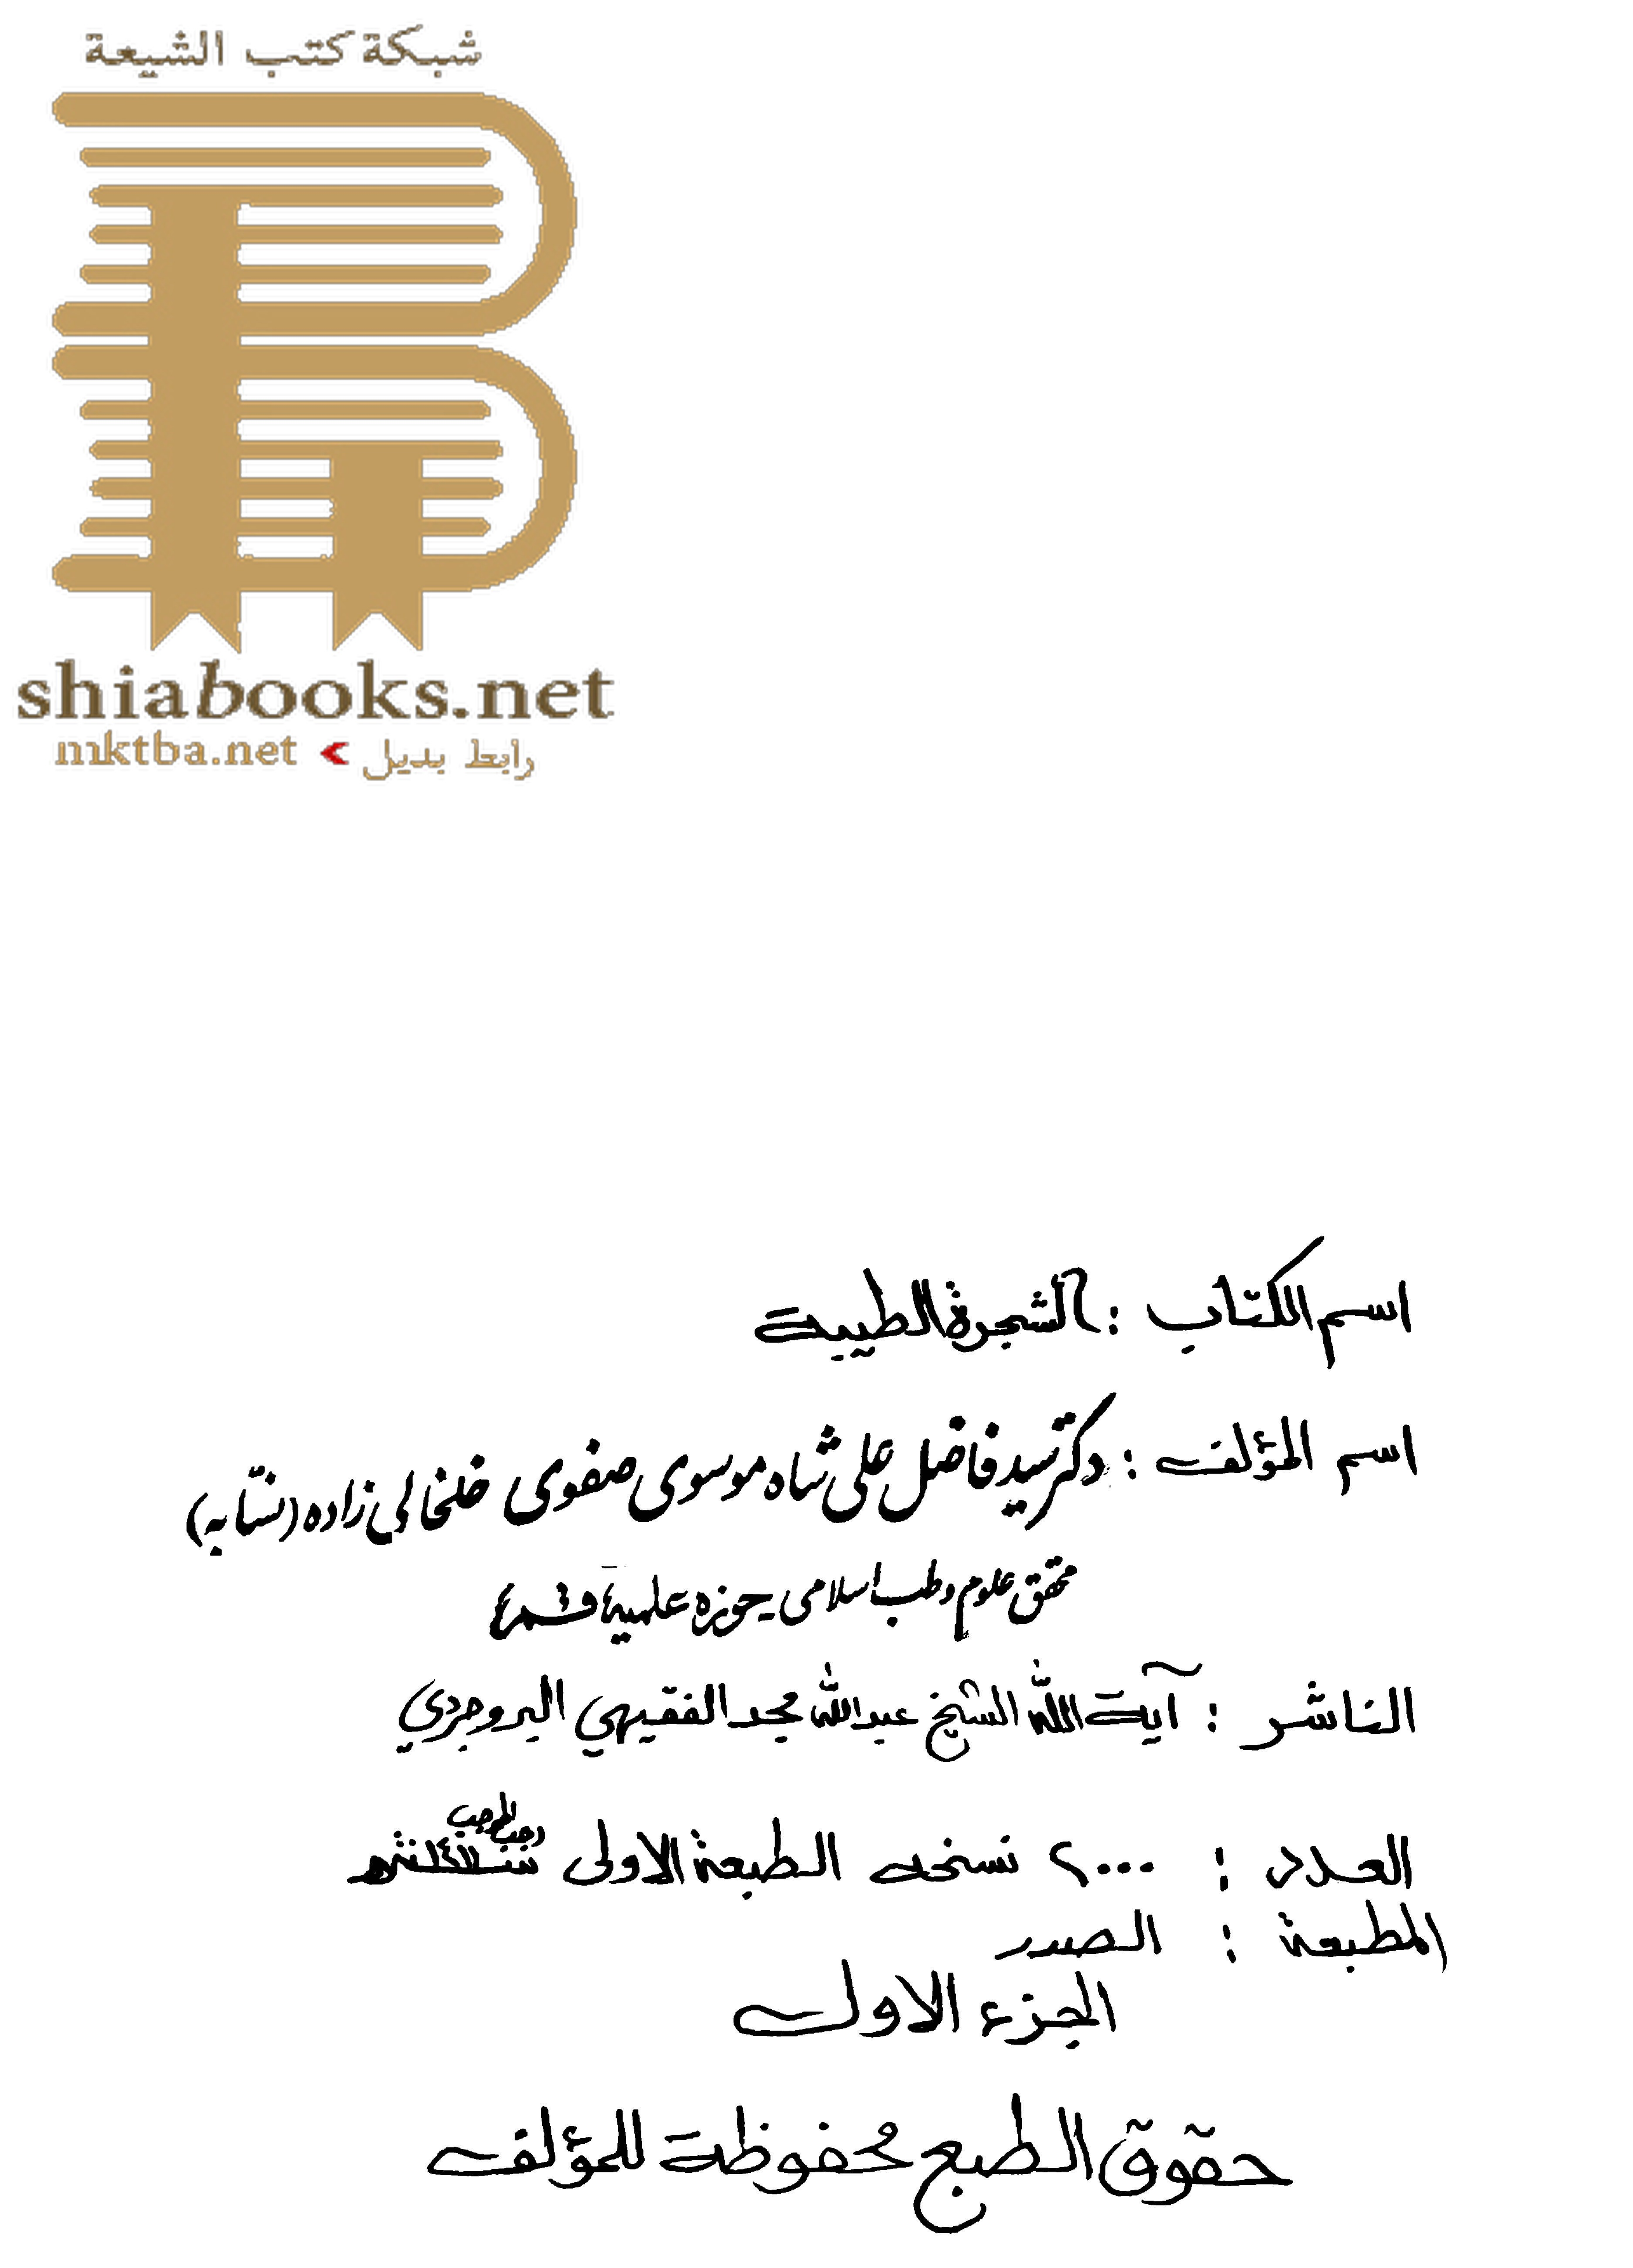 شبكة كتب الشيعة
shiabooks.net
mktba.net < رابط بديل
اسم الكتاب : الشجرة الطيبة
اسم المؤلف : دكتر سيد فاضل على شاه موسوى صفوى خلخالي زاده (نسّابه)
محقق علوم وطب اسلامى حوزه علمية
الناشر : آية الله الشيخ عبدالله محمد الفقيهي البروجردي
العدد : ٢٠٠٠ نسخه الطبعة الاولى
المطبعة : الصدر
الجزء الاول
حقوق الطبع محفوظة للمؤلف